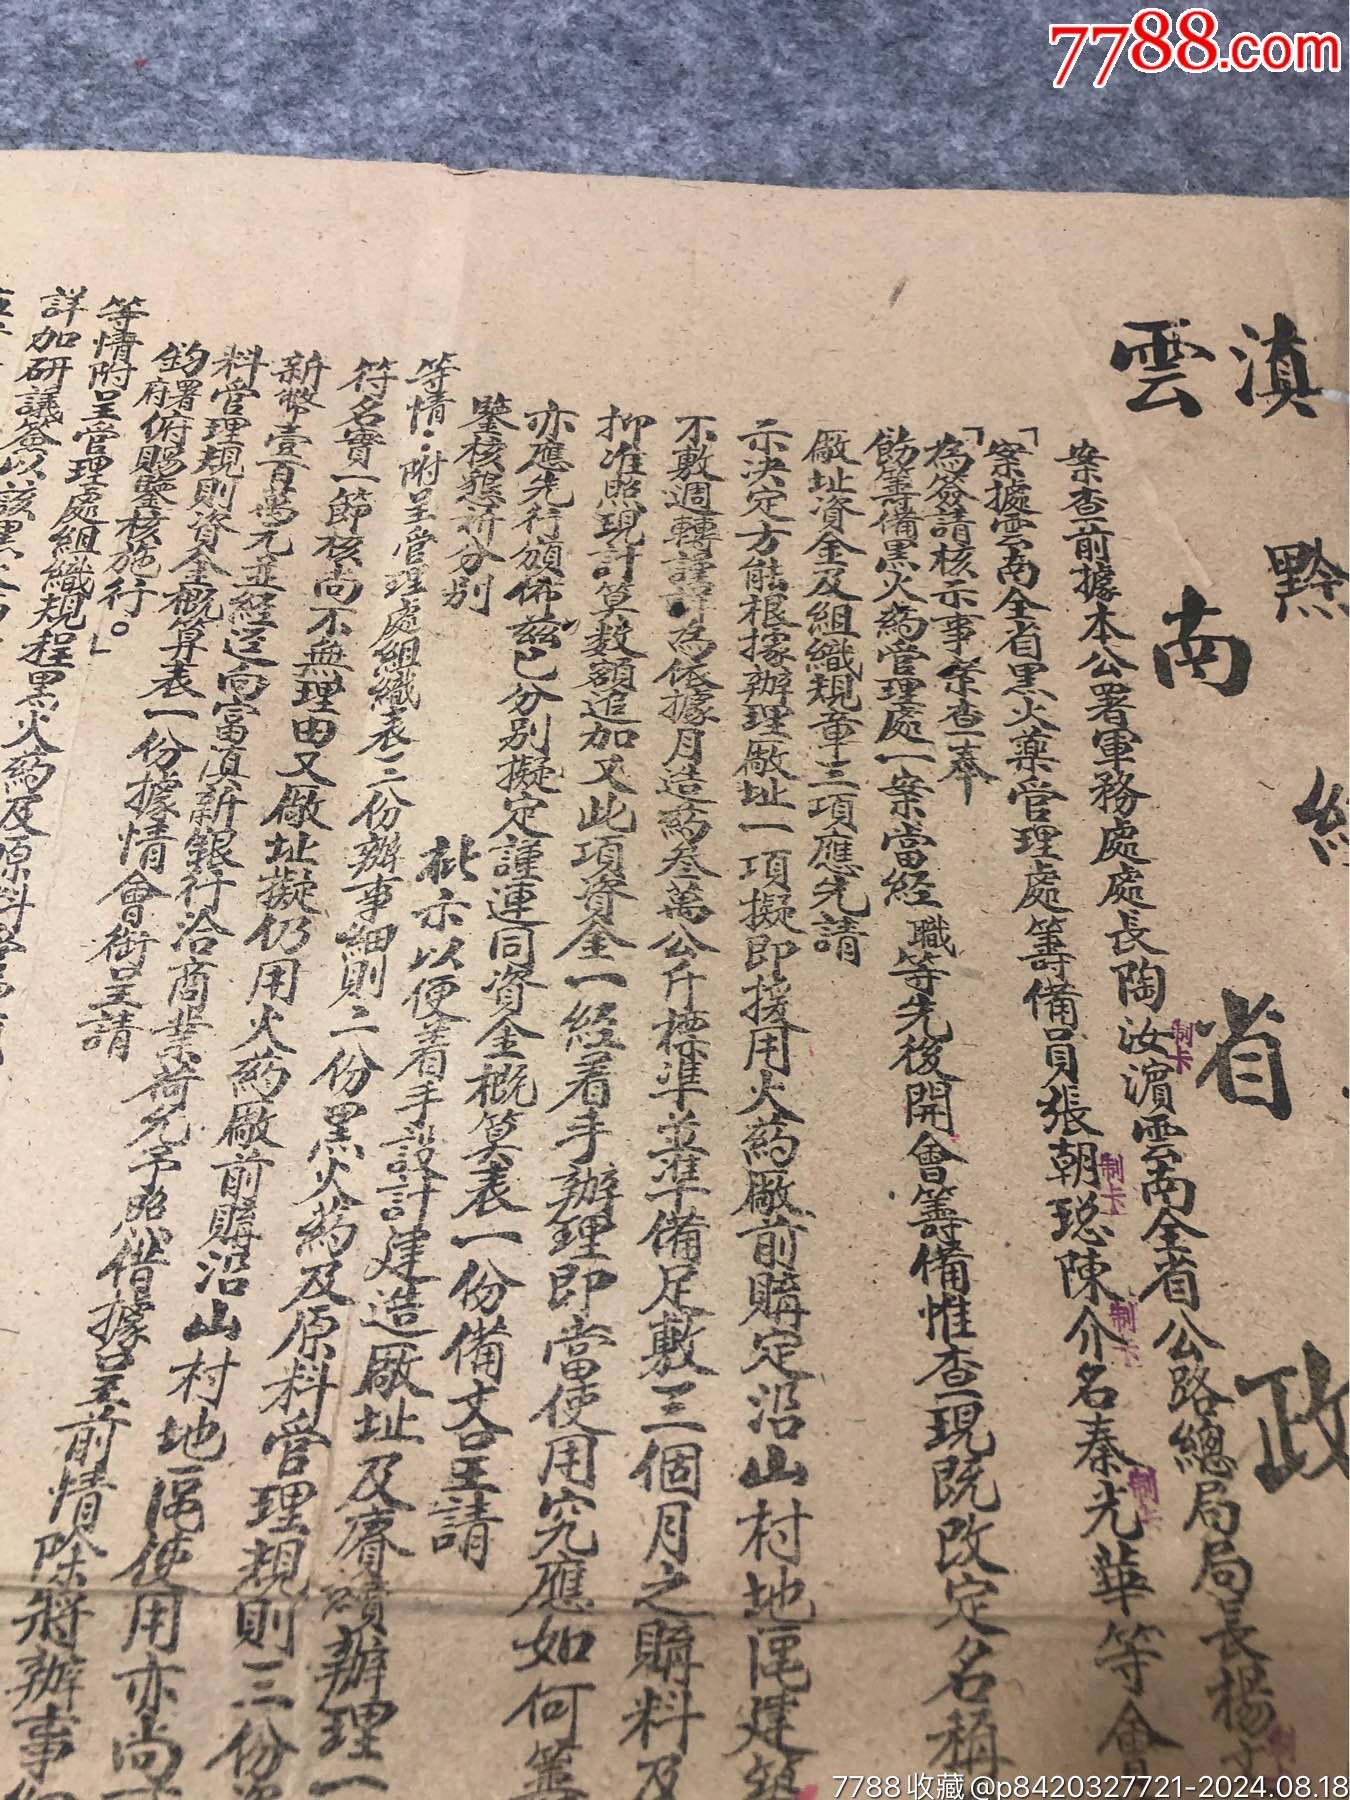 7788.com
滇黔綏
雲南省政
案查前據本公署軍務處處長陶汝濱雲南全省公路總局局長楊
「案據雲南全省黑火藥管理處籌備員張朝聰陳介名秦光華等會
「為簽請核示事案查奉
飭籌備黑火药管理處一案當經職等先後開會籌備惟查現既改定名稱
廠址資金及組織規章三項應先請
示決定方能根據辦理廠址一項擬即援用火药廠前購定沿山村地區建築
不敷週轉謹詳為依據月造药叁萬公斤標準並準備足敷三個月之購料及
抑准照現計算数額追加又此項資金一經着手辦理即當使用究應如何籌
亦應先行頒佈茲已分别擬定謹連同資金概算表一份備文呈請
鑒核懇祈分别
批示以便着手設計建造廠址及賡續辦理一
等情：附呈管理處組織表二份辦事細則二份黑火药及原料管理規則三份
符名實一節核尚不無理由又廠址擬仍用火药廠前購沿山村地區使用亦尚
新幣壹百萬元並經逕向富滇新銀行洽商業荷允予照借據呈前情除將辦事
料管理規則資金概算表一份據情會銜呈請
鈞署府俯賜鑒核施行。」
等情附呈管理處組織規程黑火药及原料
詳加研議簽以該黑火
制卡
制卡
制卡
制卡
7788收藏@p8420327721-2024.08.18